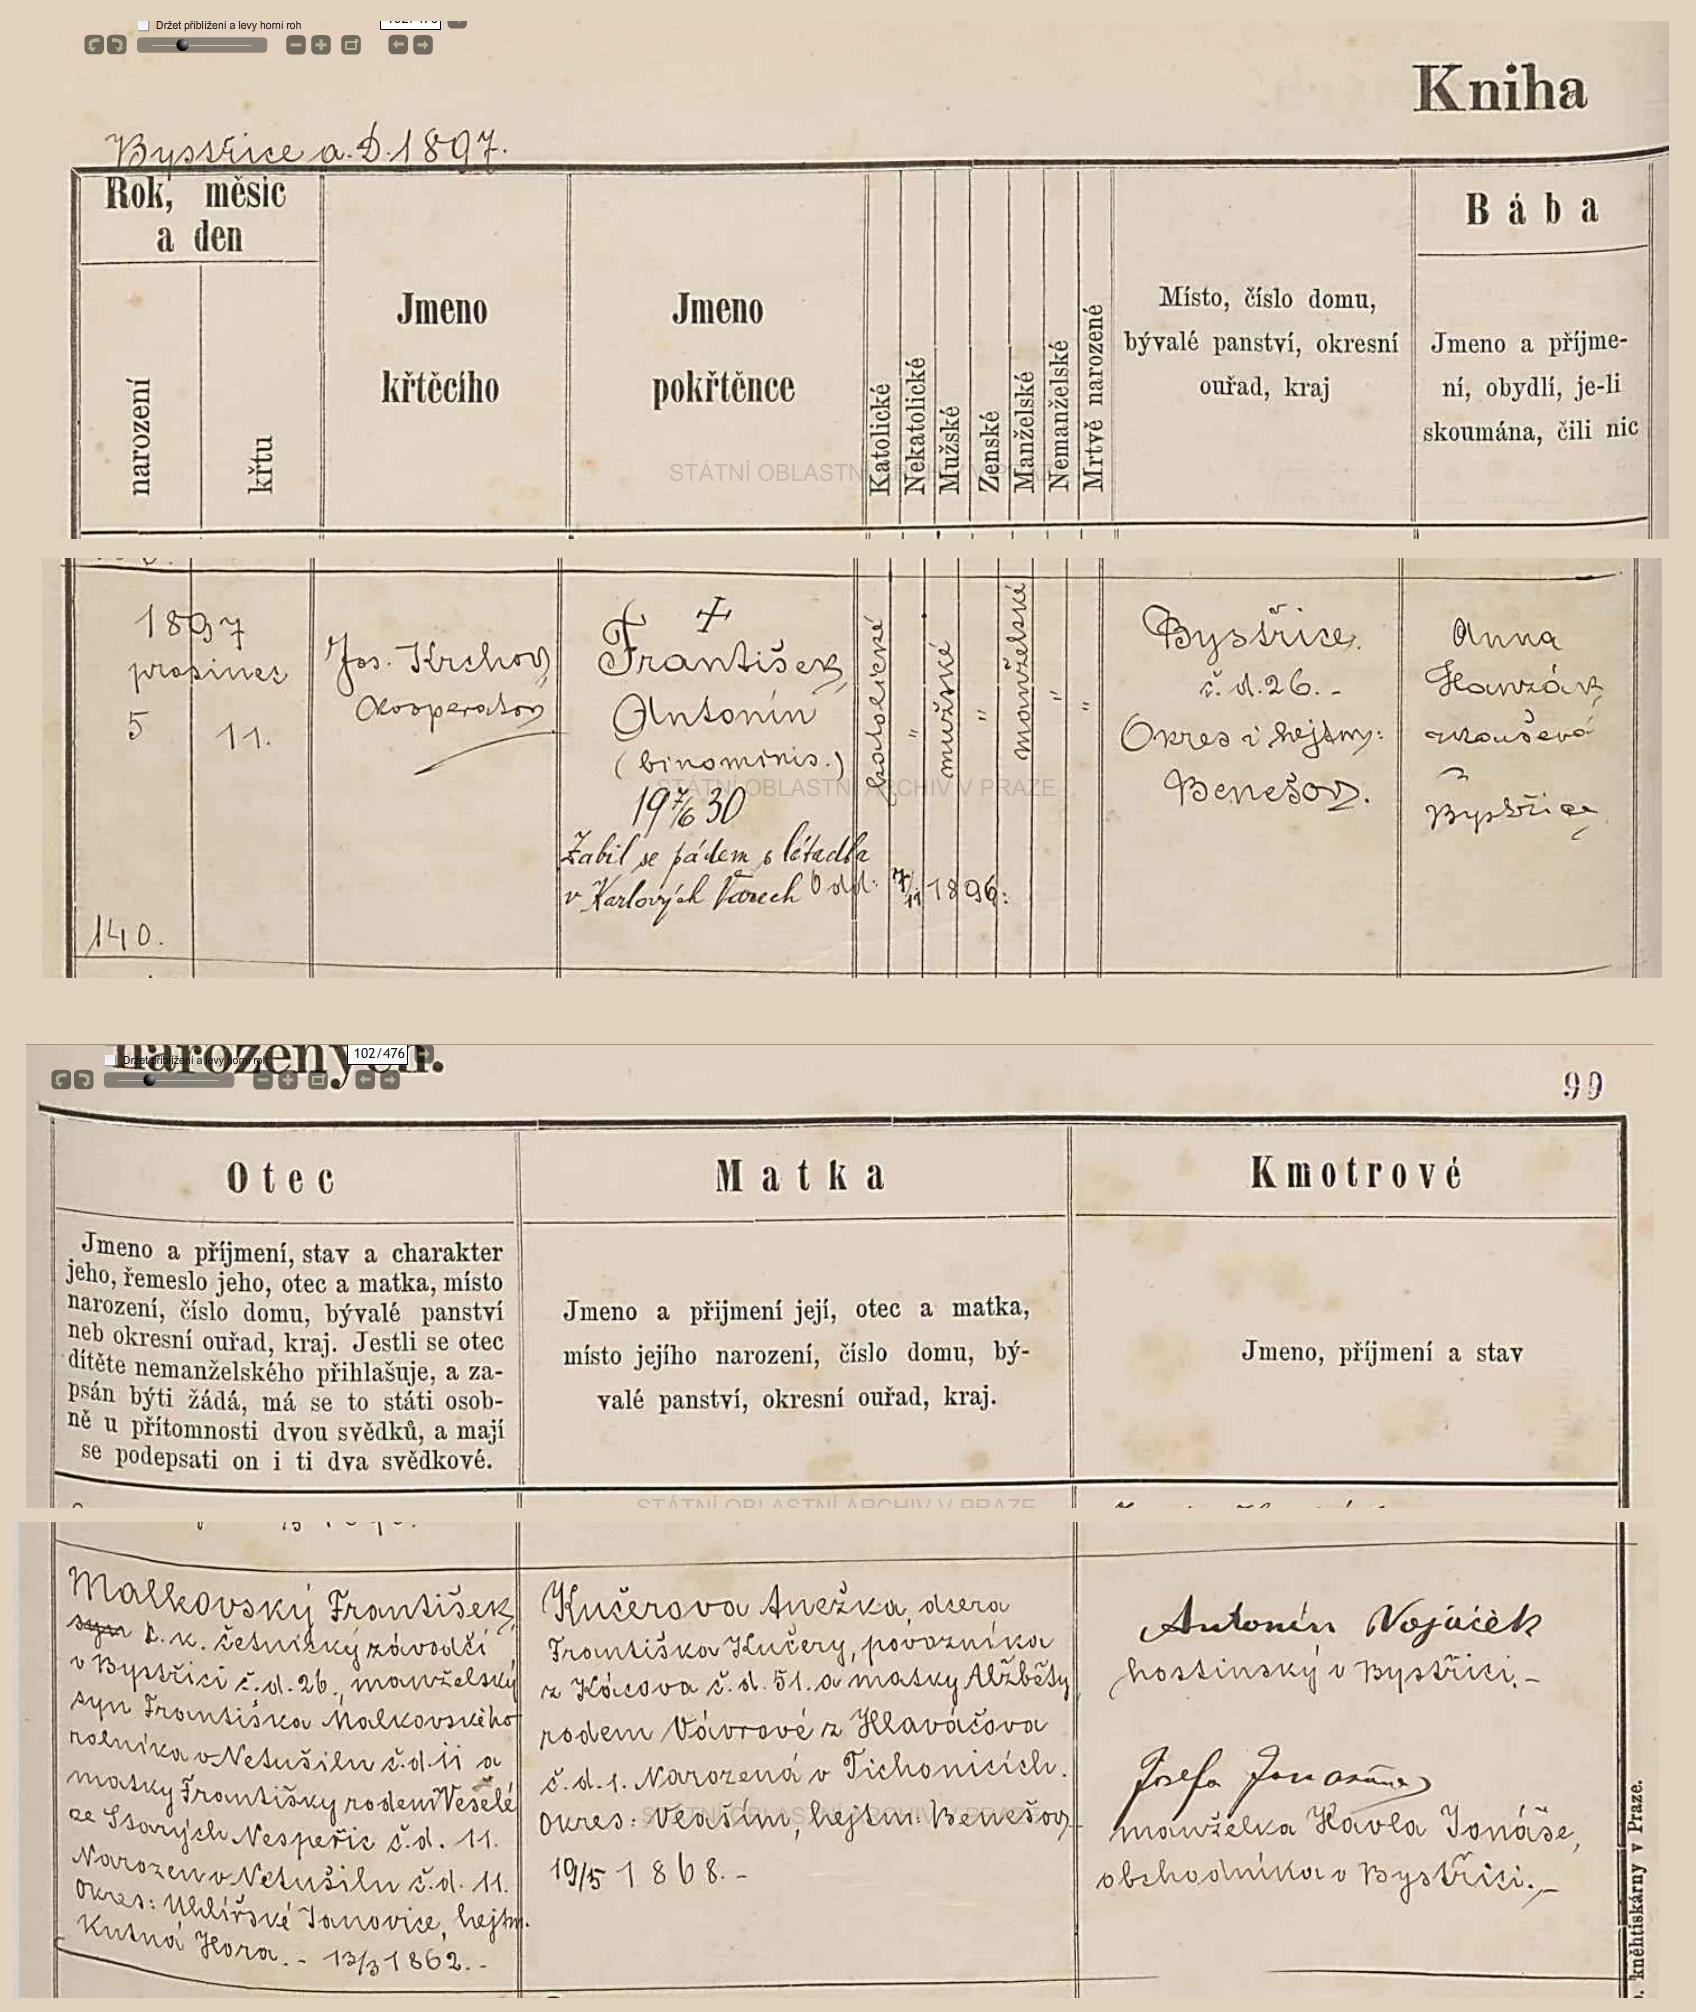 Držet přiblížení a levy horni roh
Kniha
Bystřice a. D. 1897.
Rok, měsíc
a den
narození
křtu
Jmeno
křtěcího
Jmeno
pokřtěnce
Katolické
Nekatolické
Mužské
Ženské
Manželské
Nemanželské
Mrtvě narozené
Místo, číslo domu,
bývalé panství, okresní
ouřad, kraj
Bába
Jmeno a příjme-
ní, obydlí, je-li
skoumána, čili nic
STÁTNÍ OBLASTNÍ ARCHIV V PRAZE
1897
prosinec
5
11.
140.
Jos. Krchov
Kooperator
František
Antonín
(binominis.)
19 7/6 30
Zabil se pádem s létadla
v Karlových Varech Odd: 7/11 1896:
katolické
"
mužské
"
manželské
"
"
Bystřice
č. d. 26. -
Okres i hejtm:
Benešov.
Anna
zkoušená
z
Bystřice
STÁTNÍ OBLASTNÍ ARCHIV V PRAZE
narozených.
Držet přiblížení a levy horni roh
102/476
99
Otec
Jmeno a příjmení, stav a charakter
jeho, řemeslo jeho, otec a matka, místo
narození, číslo domu, bývalé panství
neb okresní ouřad, kraj. Jestli se otec
dítěte nemanželského přihlašuje, a za-
psán býti žádá, má se to státi osob-
ně u přítomnosti dvou svědků, a mají
se podepsati on i ti dva svědkové.
Matka
Jmeno a přijmení její, otec a matka,
místo jejího narození, číslo domu, bý-
valé panství, okresní ouřad, kraj.
Kmotrové
Jmeno, příjmení a stav
STÁTNÍ OBLASTNÍ ARCHIV V PRAZE
Malkovský František,
syn c. k. četnický závodčí
v Bystřici č. d. 26., manželský
syn Františka Malkovského
rolníka v Netušilu č. d. 11 a
matky Františky rodem Veselé
ze Starých Nespeřic č. d. 11.
Narozen v Netušilu č. d. 11.
Okres: Uhlířské Janovice, hejtm.
Kutná Hora. - 13/3 1862. -
Kučerova Anežka, dcera
Františka Kučery, povozníka
z Kácova č. d. 51. a matky Alžběty
rodem Vávrové z Hlaváčova
č. d. 1. Narozená v Tichonicích.
Okres: Vlaším, hejtm: Benešov.
19/5 1868. -
Antonín Vojáček
hostinský v Bystřici. -
Josefa Jonášová
manželka Havla Jonáše,
obchodníka v Bystřici. -
STÁTNÍ OBLASTNÍ ARCHIV V PRAZE
kněhtiskárny v Praze.